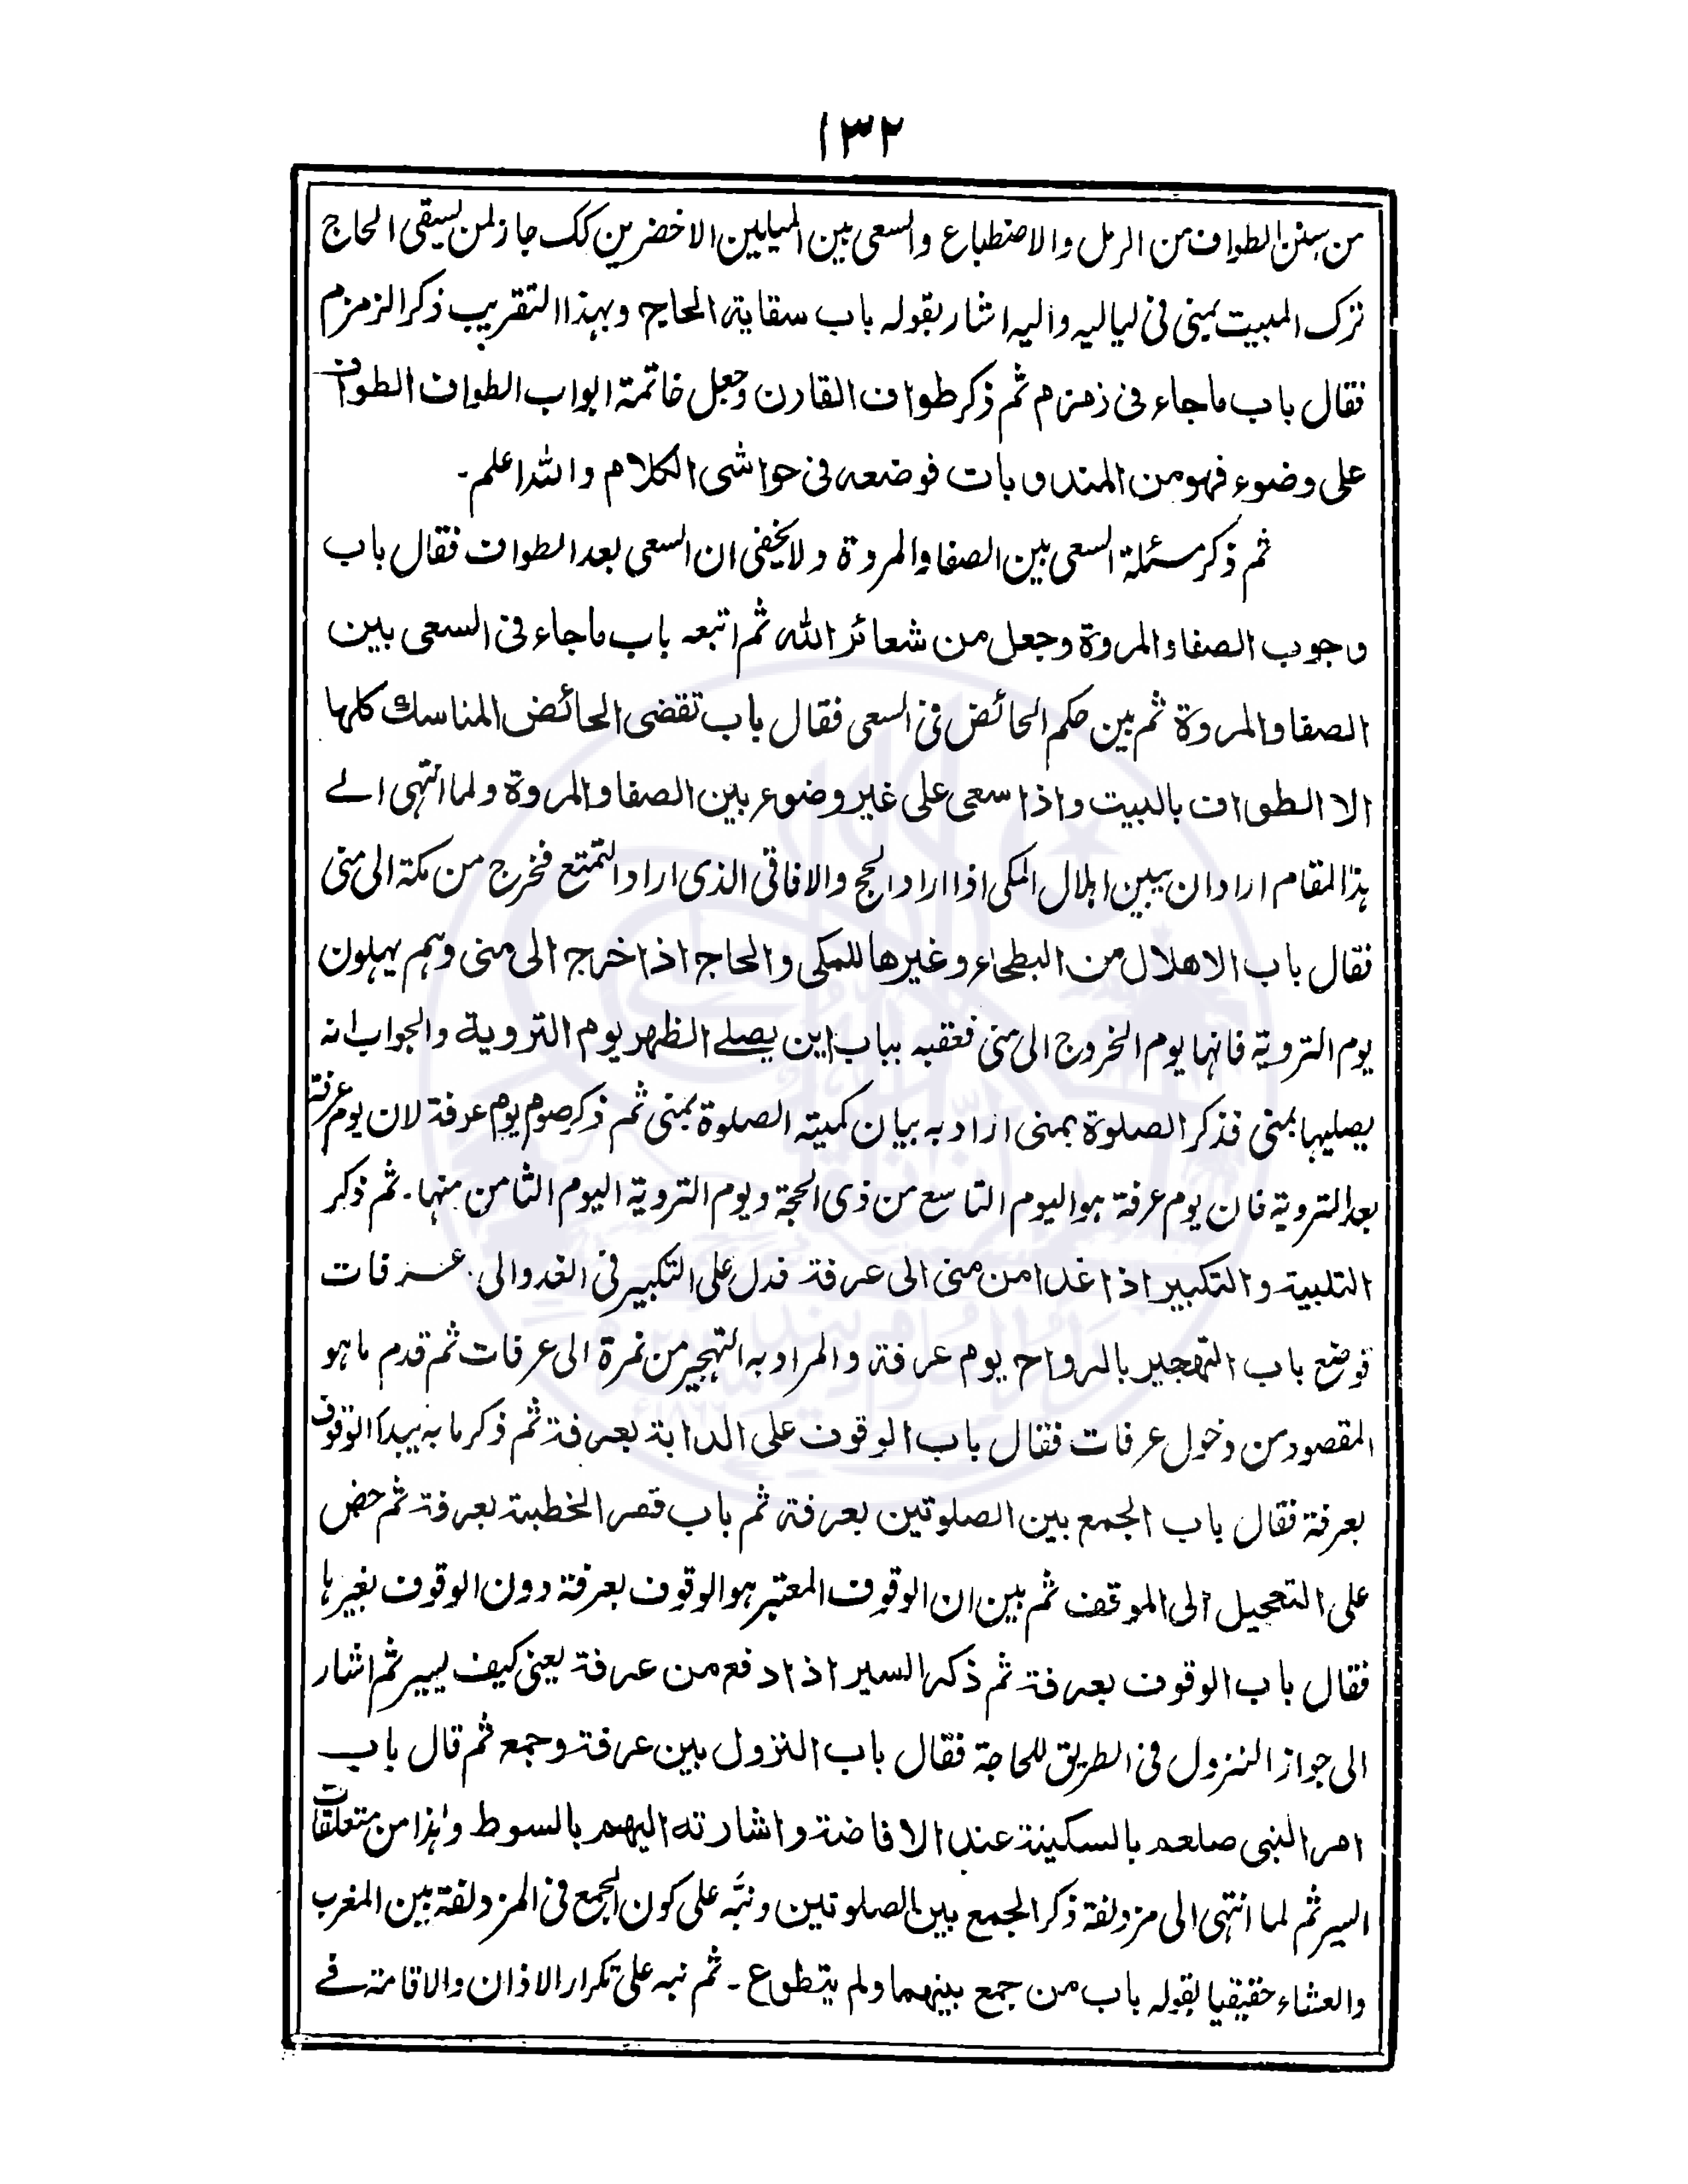 ١٣٢
من سنن الطواف من الرمل والاضطباع والسعی بین المیلین الاخضرین کک جاز لمن یسقی الحاج
ترک المبیت بمنی فی لیالیه والیه اشار بقوله باب سقایة الحاج وبهذا التقریب ذکر الزمزم
فقال باب ماجاء فی زمزم ثم ذکر طواف القارن وجعل خاتمة ابواب الطواف الطواف
علی وضوء فهو من المندوبات فوضعه فی حواشی الکلام والله اعلم۔
ثم ذکر مسئلة السعی بین الصفا والمروة ولا یخفی ان السعی بعد الطواف فقال باب
وجوب الصفا والمروة وجعل من شعائر الله ثم اتبعه باب ماجاء فی السعی بین
الصفا والمروة ثم بین حکم الحائض فی السعی فقال باب تقضی الحائض المناسک کلها
الا الطواف بالبیت واذا سعی علی غیر وضوء بین الصفا والمروة ولما انتهی الے
هذا المقام اراد ان یبین اهلال المکی اذا اراد الحج والافاقی الذی اراد التمتع فخرج من مکة الی منی
فقال باب الاهلال من البطحاء وغیرها للمکی والحاج اذا خرج الی منی وهم یهلون
یوم الترویة فانها یوم الخروج الی منی فعقبه بباب این یصلے الظهر یوم الترویة والجواب انه
یصلیها بمنی فذکر الصلوة بمنی اراد به بیان کمیته الصلوة بمنی ثم ذکر صوم یوم عرفة لان یوم عرفة
بعد الترویة فان یوم عرفة هو الیوم التاسع من ذی الحجة ویوم الترویة الیوم الثامن منها۔ ثم ذکر
التلبیة والتکبیر اذا غدا من منی الی عرفة فدل علی التکبیر فی الغدو الی عرفات
فوضع باب التهجیر بالرواح یوم عرفة والمراد به التهجیر من نمرة الی عرفات ثم قدم ما هو
المقصود من دخول عرفات فقال باب الوقوف علی الدابة بعرفة ثم ذکر ما به یبدا الوقوف
بعرفة فقال باب الجمع بین الصلوتین بعرفة ثم باب قصر الخطبة بعرفة ثم حض
علی التعجیل الی الموقف ثم بین ان الوقوف المعتبر هو الوقوف بعرفة دون الوقوف بغیرها
فقال باب الوقوف بعرفة ثم ذکر السیر اذا دفع من عرفة یعنی کیف یسیر ثم اشار
الی جواز النزول فی الطریق للحاجة فقال باب النزول بین عرفة وجمع ثم قال باب
امر النبی صلعم بالسکینة عند الافاضة واشارته الیهم بالسوط وهذا من متعلقات
السیر ثم لما انتهی الی مزدلفة ذکر الجمع بین الصلوتین ونبّه علی کون الجمع فی المزدلفة بین المغرب
والعشاء حقیقیا بقوله باب من جمع بینهما ولم یتطوع۔ ثم نبه علی تکرار الاذان والاقامة فے